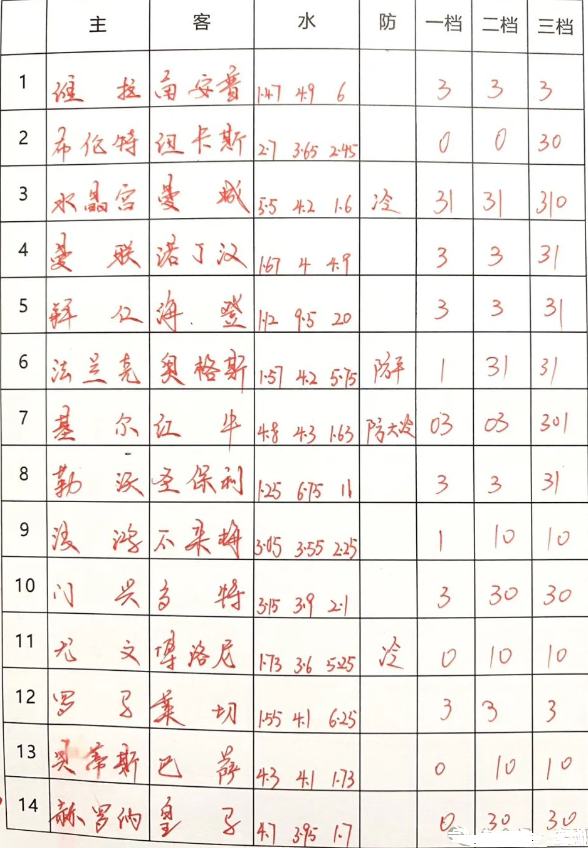 主 客 水 防 一档 二档 三档
1 维拉 南安普 1.47 4.9 6 3 3 3
2 布伦特 纽卡斯 2.7 3.65 2.45 0 0 30
3 水晶宫 曼城 5.5 4.2 1.6 冷 31 31 310
4 曼联 诺丁汉 1.67 4 4.9 3 3 31
5 拜仁 海.登 1.12 9.5 20 3 3 31
6 法兰克 奥格斯 1.57 4.2 5.75 防平 1 31 31
7 基尔 红牛 4.8 4.3 1.63 防大冷 03 03 301
8 勒沃 圣保利 1.25 6.75 11 3 3 31
9 波鸿 不来梅 3.05 3.55 2.25 1 10 10
10 门兴 多特 3.15 3.9 2.1 3 30 30
11 尤文 博洛尼 1.73 3.6 5.25 冷 0 10 10
12 罗马 莱切 1.55 4.1 6.25 3 3 3
13 贝蒂斯 巴萨 4.3 4.1 1.73 0 10 10
14 赫罗纳 皇马 4.7 3.95 1.7 0 30 30